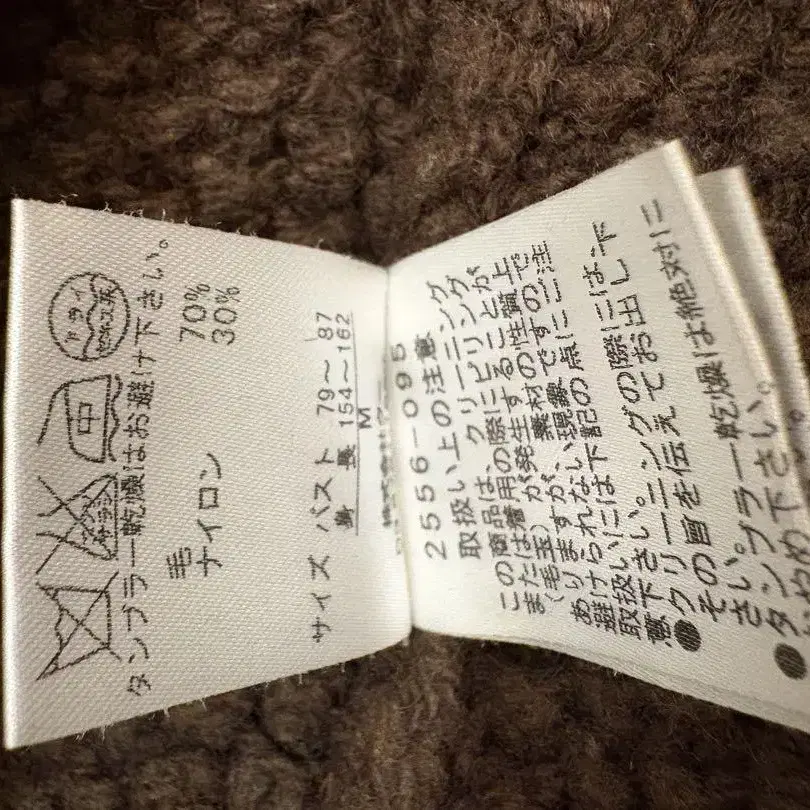 ドライ
石油系
中
エンソ
サラシ
タンブラー乾燥はお避け下さい。
毛 70%
ナイロン 30%
サイズ バスト 79～87
身長 154～162
M
株式会社
2556-095
取扱い上の注意
この商品は、クリーニング
または着用の際にピリング
(毛玉)が発生することが
ありますが、素材の性質上
避けられない現象ですので
取扱いには下記の点にご注
意下さい。
●クリーニングの際には
その旨を伝えてお出し下
さい。
●タンブラー乾燥は絶対に
め下さい。